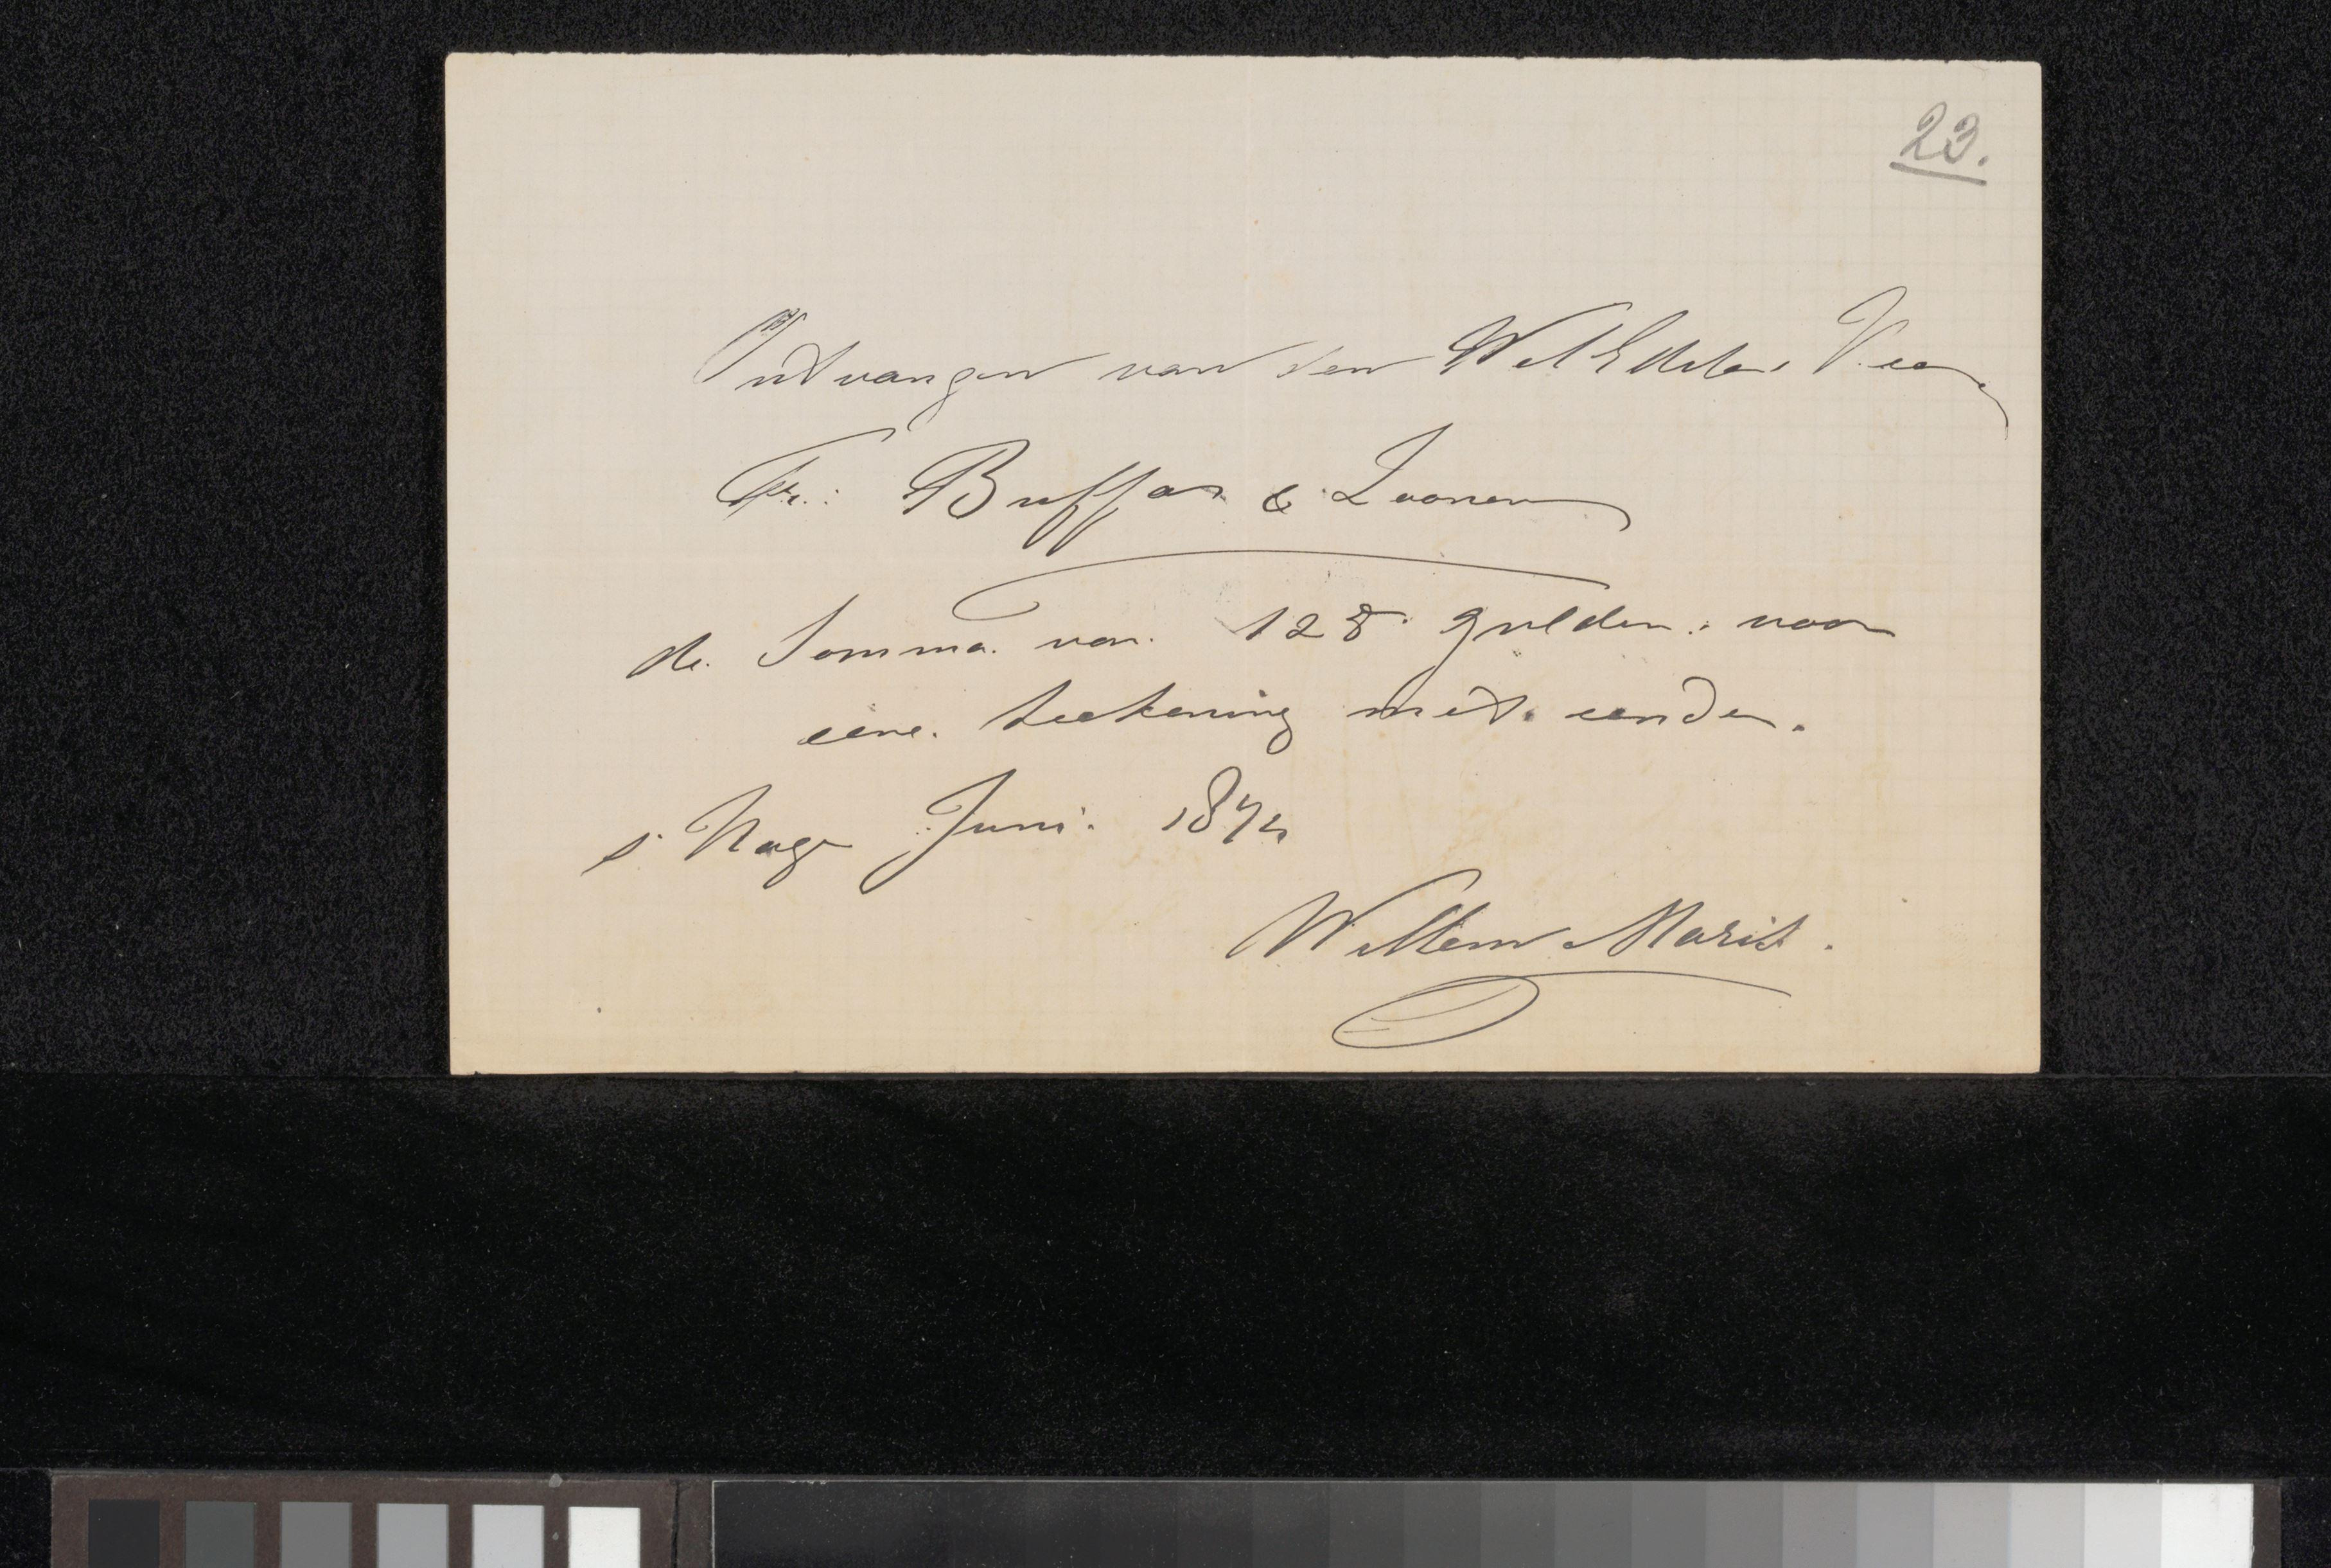 23.
Ontvangen van den WelEdelen Heer
Fr: Buffa & Zoonen
de Somma van 125 gulden: voor
eene teekening met eenden.
s' Hage Juni. 187
Willem Maris.